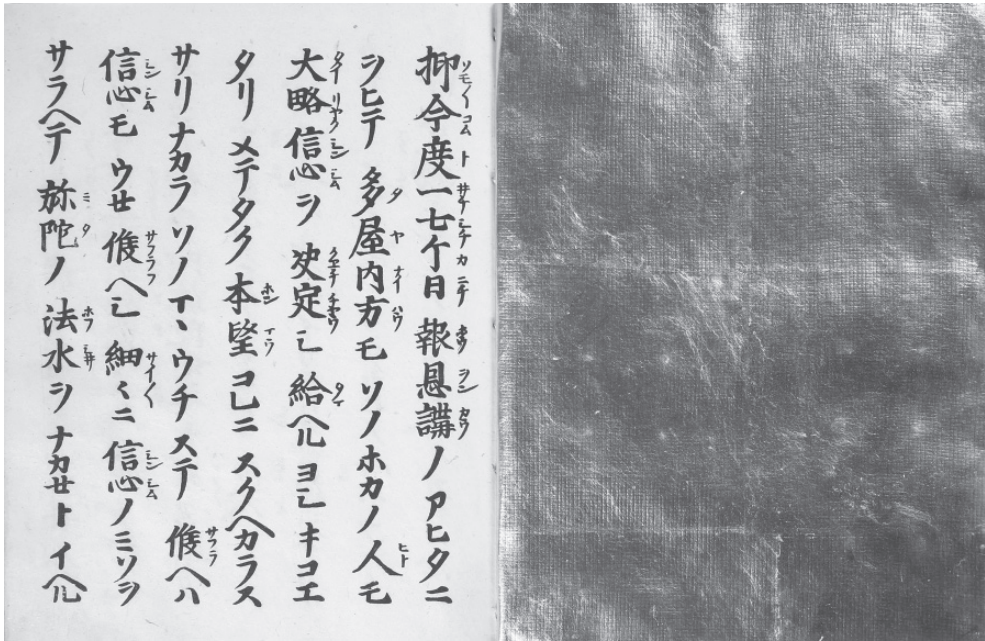 抑今度一七ケ日報恩講ノアヒタニ
ヲヒテ多屋内方モソノホカノ人モ
大略信心ヲ决定シ給ヘルヨシキコエ
タリメテタク本望コレニスクヘカラス
サリナカラソノマヽウチステ候ヘハ
信心モウセ候ヘシ細〱ニ信心ノミソヲ
サラヘテ弥陀ノ法水ヲナカセトイヘル